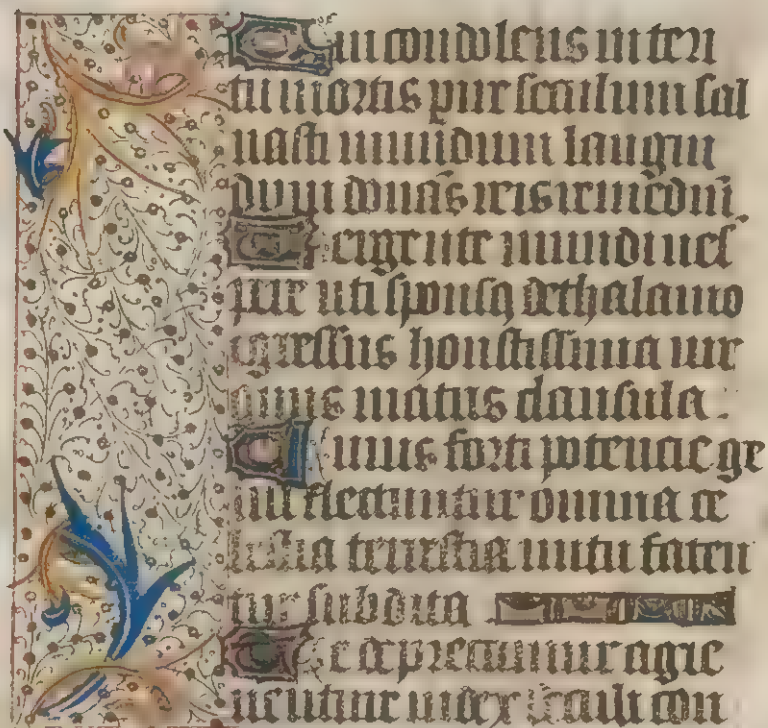 Qui condolens interi
tu mortis perire seculum sal
uasti mundum langui
dum donās reis remediū
Uergente mundi ues
pere uti sponsꝫ de thalamo
egressus honestissima uir
ginis matris clausula.
Cuius forti potencie ge
nu flectuntur omnia ce
lestia terrestria nutu faten
tur subdita
Te deprecamur agie
uenture iudex seculi con